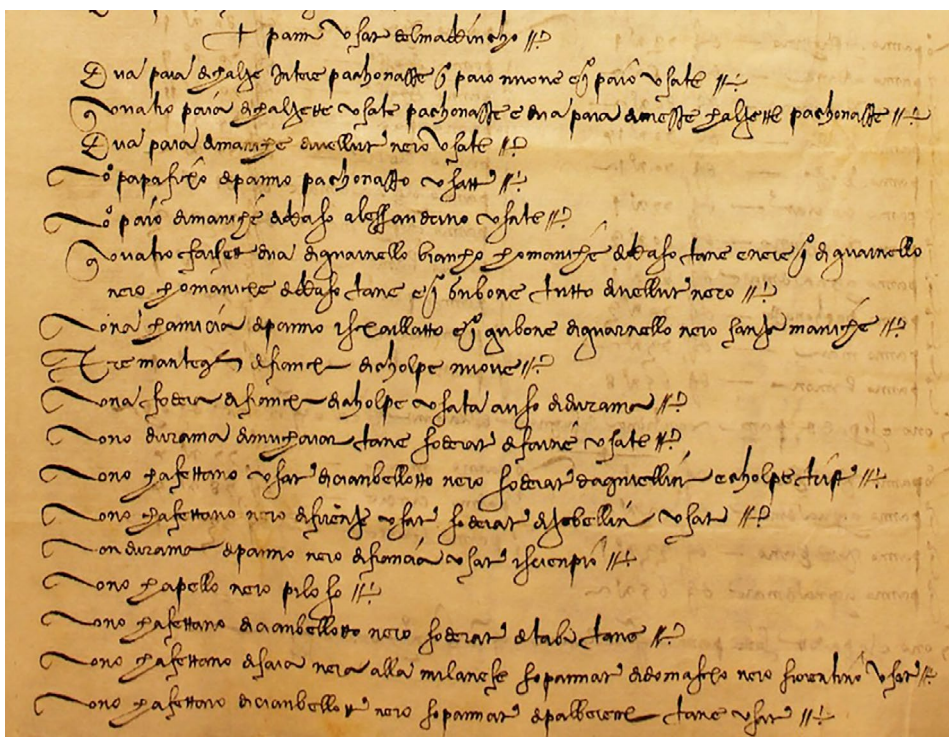 panni usati del maddincho
Dua paia di chalze intere pachonasse j paio nuove e j paio usate
Quatro paia di chalzette usate pachonasse e dua paia di mesze chalzette pachonasse
Dua paia di maniche di vellut nero usate
Io papaficho di panno pachonasso usatt
Io paio di maniche di raso alessandrino usate
Quatro farset dua di guarnello biancho chomaniche di raso tane e nere j di guarnello
nero chomaniche di raso tane e j gubone tutto di vellut nero
Una chamicia di panno ischarllatto e j gubone di guarnello nero sanze maniche
Tre di cholpe nuove
Una fodera di cholpe usata a uso di durama
Uno durama di muchaiar tane foderat usate
Uno chafettano usat di cianbellotto nero foderat e cholpe
Uno chafettano nero di firenze usat foderat di zebellin usat
Un durama di panno nero usat
Uno chapello nero piloso
Uno chafettano di cianbellotto nero foderat di tabi tane
Uno chafettano di saia nera alla milanese sopannat di domascho nero fiorentino usat
Uno chafettano di cianbellot nero sopannat tane usat